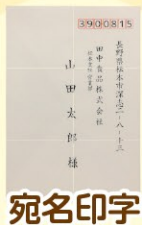 3900815
長野県松本市深志二-八-十三
田中食品株式会社
山田太郎様
宛名印字